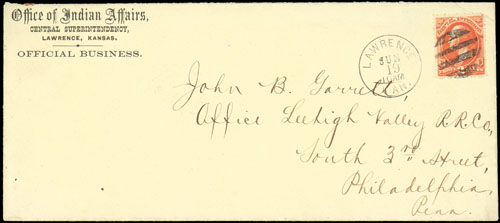 Office of Indian Affairs,
CENTRAL SUPERINTENDENCY,
LAWRENCE, KANSAS.
OFFICIAL BUSINESS.
LAWRENCE
JUN
10
KAN.
John B. Garrett,
Office Leehigh Valley R.R.Co,
South 3rd Street,
Philadelphia,
Penn.